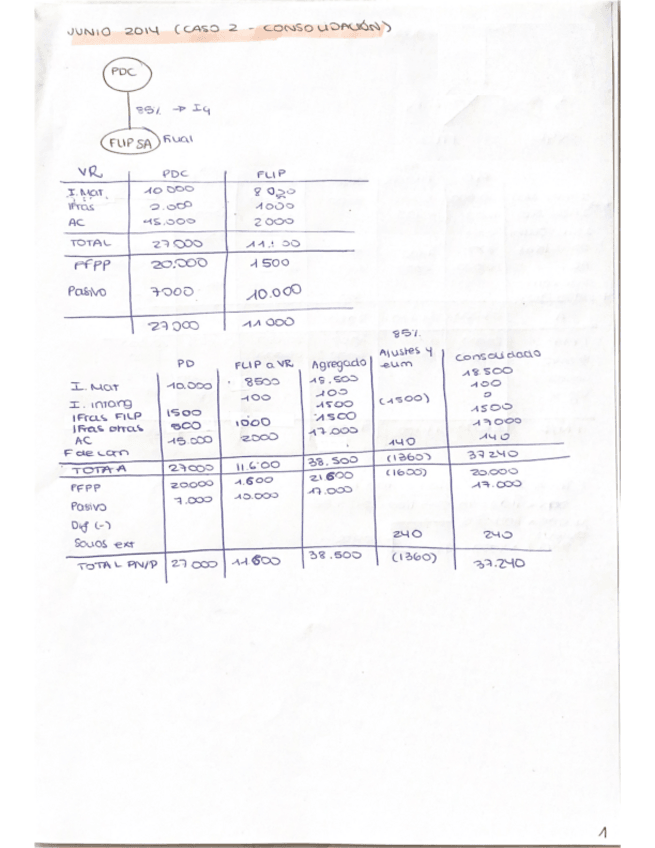 JUNIO 2014 (CASO 2 - CONSOLIDACIÓN)
PDC
85% → IG
FLIP SA filial
VR PDC FLIP
I. Mat. 10 000
Ifras 2.000 1000
AC 15.000 2000
TOTAL 27 000
FFPP 20.000 1500
Pasivo 7000 10.000
27 000 11 000
85%
PD FLIP a VR Agregado Ajustes y elim Consolidado
I. Mat 10.000 8500 18.500 18 500
I. intang 100 100 100
Ifras FILP 1500 1500 (1500) 0
Ifras otras 500 1000 1500 1500
AC 15.000 2000 17.000 17000
F de con 140 140
TOTA A 27000 11.600 38.500 (1360) 37240
FFPP 20000 1.600 21.600 (1600) 20.000
Pasivo 7.000 10.000 17.000 17.000
Dif (-)
Socios ext 240 240
TOTAL PN/P 27 000 11600 38.500 (1360) 37.240
1